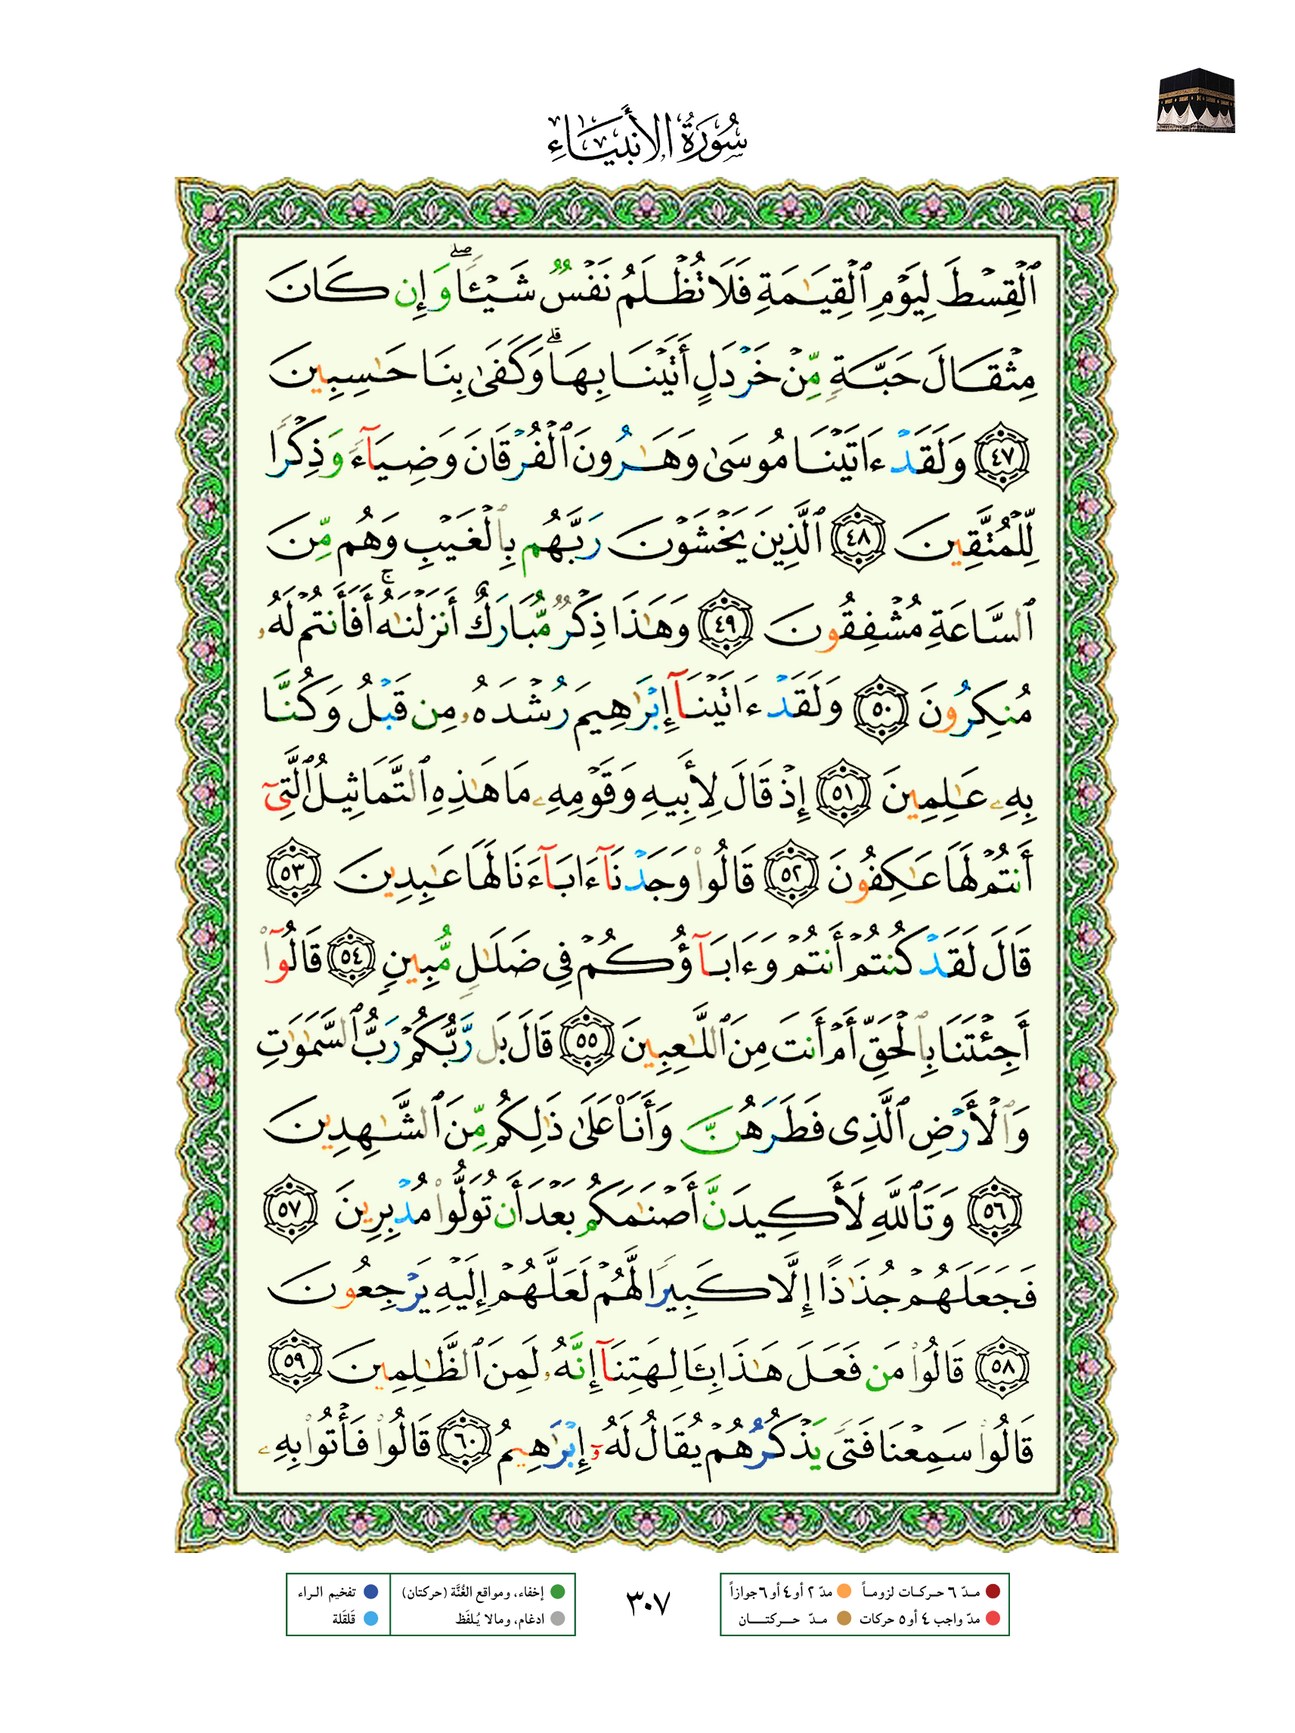 سُورَةُ الأَنبِيَاءِ
ٱلْقِسْطَ لِيَوْمِ ٱلْقِيَـٰمَةِ فَلَا تُظْلَمُ نَفْسٌ شَيْـًٔا ۖ وَإِن كَانَ
مِثْقَالَ حَبَّةٍ مِّنْ خَرْدَلٍ أَتَيْنَا بِهَا ۗ وَكَفَىٰ بِنَا حَـٰسِبِينَ
٤٧ وَلَقَدْ ءَاتَيْنَا مُوسَىٰ وَهَـٰرُونَ ٱلْفُرْقَانَ وَضِيَآءً وَذِكْرًا
لِّلْمُتَّقِينَ ٤٨ ٱلَّذِينَ يَخْشَوْنَ رَبَّهُم بِٱلْغَيْبِ وَهُم مِّنَ
ٱلسَّاعَةِ مُشْفِقُونَ ٤٩ وَهَـٰذَا ذِكْرٌ مُّبَارَكٌ أَنزَلْنَـٰهُ ۚ أَفَأَنتُمْ لَهُۥ
مُنكِرُونَ ٥٠ وَلَقَدْ ءَاتَيْنَآ إِبْرَٰهِيمَ رُشْدَهُۥ مِن قَبْلُ وَكُنَّا
بِهِۦ عَـٰلِمِينَ ٥١ إِذْ قَالَ لِأَبِيهِ وَقَوْمِهِۦ مَا هَـٰذِهِ ٱلتَّمَاثِيلُ ٱلَّتِىٓ
أَنتُمْ لَهَا عَـٰكِفُونَ ٥٢ قَالُوا۟ وَجَدْنَآ ءَابَآءَنَا لَهَا عَـٰبِدِينَ ٥٣
قَالَ لَقَدْ كُنتُمْ أَنتُمْ وَءَابَآؤُكُمْ فِى ضَلَـٰلٍ مُّبِينٍ ٥٤ قَالُوٓا۟
أَجِئْتَنَا بِٱلْحَقِّ أَمْ أَنتَ مِنَ ٱللَّـٰعِبِينَ ٥٥ قَالَ بَل رَّبُّكُمْ رَبُّ ٱلسَّمَـٰوَٰتِ
وَٱلْأَرْضِ ٱلَّذِى فَطَرَهُنَّ وَأَنَا۠ عَلَىٰ ذَٰلِكُم مِّنَ ٱلشَّـٰهِدِينَ
٥٦ وَتَٱللَّهِ لَأَكِيدَنَّ أَصْنَـٰمَكُم بَعْدَ أَن تُوَلُّوا۟ مُدْبِرِينَ ٥٧
فَجَعَلَهُمْ جُذَٰذًا إِلَّا كَبِيرًا لَّهُمْ لَعَلَّهُمْ إِلَيْهِ يَرْجِعُونَ
٥٨ قَالُوا۟ مَن فَعَلَ هَـٰذَا بِـَٔالِهَتِنَآ إِنَّهُۥ لَمِنَ ٱلظَّـٰلِمِينَ ٥٩
قَالُوا۟ سَمِعْنَا فَتًى يَذْكُرُهُمْ يُقَالُ لَهُۥٓ إِبْرَٰهِيمُ ٦٠ قَالُوا۟ فَأْتُوا۟ بِهِۦ
مدّ ٦ حركات لزوماً مدّ ٢ أو ٤ أو ٦ جوازاً
مدّ واجب ٤ أو ٥ حركات مدّ حركتان
٣٠٧
إخفاء، ومواقع الغُنَّة (حركتان) تفخيم الراء
ادغام، ومالا يُلفَظ قلقلة